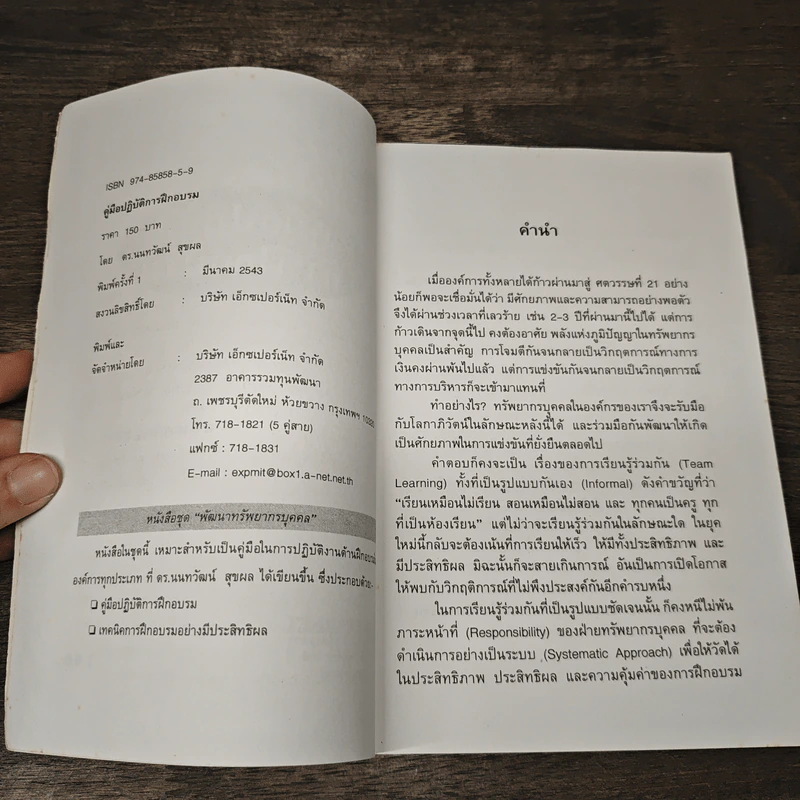 ISBN 974-85858-5-9
คู่มือปฏิบัติการฝึกอบรม
ราคา 150 บาท
โดย ดร.นนทวัฒน์ สุขผล
พิมพ์ครั้งที่ 1 : มีนาคม 2543
สงวนลิขสิทธิ์โดย : บริษัท เอ็กซเปอร์เน็ท จำกัด
พิมพ์และ
จัดจำหน่ายโดย : บริษัท เอ็กซเปอร์เน็ท จำกัด
2387 อาคารรวมทุนพัฒนา
ถ. เพชรบุรีตัดใหม่ ห้วยขวาง กรุงเทพฯ
โทร. 718-1821 (5 คู่สาย)
แฟกซ์ : 718-1831
E-mail : expmit@box1.a-net.net.th
หนังสือชุด "พัฒนาทรัพยากรบุคคล"
หนังสือในชุดนี้ เหมาะสำหรับเป็นคู่มือในการปฏิบัติงานด้านฝึกอบรม
องค์การทุกประเภท ที่ ดร.นนทวัฒน์ สุขผล ได้เขียนขึ้น ซึ่งประกอบด้วย:-
❑ คู่มือปฏิบัติการฝึกอบรม
❑ เทคนิคการฝึกอบรมอย่างมีประสิทธิผล
คำนำ
เมื่อองค์การทั้งหลายได้ก้าวผ่านมาสู่ ศตวรรษที่ 21 อย่าง
น้อยก็พอจะเชื่อมั่นได้ว่า มีศักยภาพและความสามารถอย่างพอตัว
จึงได้ผ่านช่วงเวลาที่เลวร้าย เช่น 2-3 ปีที่ผ่านมานี้ไปได้ แต่การ
ก้าวเดินจากจุดนี้ไป คงต้องอาศัย พลังแห่งภูมิปัญญาในทรัพยากร
บุคคลเป็นสำคัญ การโจมตีกันจนกลายเป็นวิกฤตการณ์ทางการ
เงินคงผ่านพ้นไปแล้ว แต่การแข่งขันกันจนกลายเป็นวิกฤตการณ์
ทางการบริหารก็จะเข้ามาแทนที่
ทำอย่างไร? ทรัพยากรบุคคลในองค์กรของเราจึงจะรับมือ
กับโลกาภิวัตน์ในลักษณะหลังนี้ได้ และร่วมมือกันพัฒนาให้เกิด
เป็นศักยภาพในการแข่งขันที่ยั่งยืนตลอดไป
คำตอบก็คงจะเป็น เรื่องของการเรียนรู้ร่วมกัน (Team
Learning) ทั้งที่เป็นรูปแบบกันเอง (Informal) ดังคำขวัญที่ว่า
"เรียนเหมือนไม่เรียน สอนเหมือนไม่สอน และ ทุกคนเป็นครู ทุก
ที่เป็นห้องเรียน" แต่ไม่ว่าจะเรียนรู้ร่วมกันในลักษณะใด ในยุค
ใหม่นี้กลับจะต้องเน้นที่การเรียนให้เร็ว ให้มีทั้งประสิทธิภาพ และ
มีประสิทธิผล มิฉะนั้นก็จะสายเกินการณ์ อันเป็นการเปิดโอกาส
ให้พบกับวิกฤติการณ์ที่ไม่พึงประสงค์กันอีกคำรบหนึ่ง
ในการเรียนรู้ร่วมกันที่เป็นรูปแบบชัดเจนนั้น ก็คงหนีไม่พ้น
ภาระหน้าที่ (Responsibility) ของฝ่ายทรัพยากรบุคคล ที่จะต้อง
ดำเนินการอย่างเป็นระบบ (Systematic Approach) เพื่อให้วัดได้
ในประสิทธิภาพ ประสิทธิผล และความคุ้มค่าของการฝึกอบรม